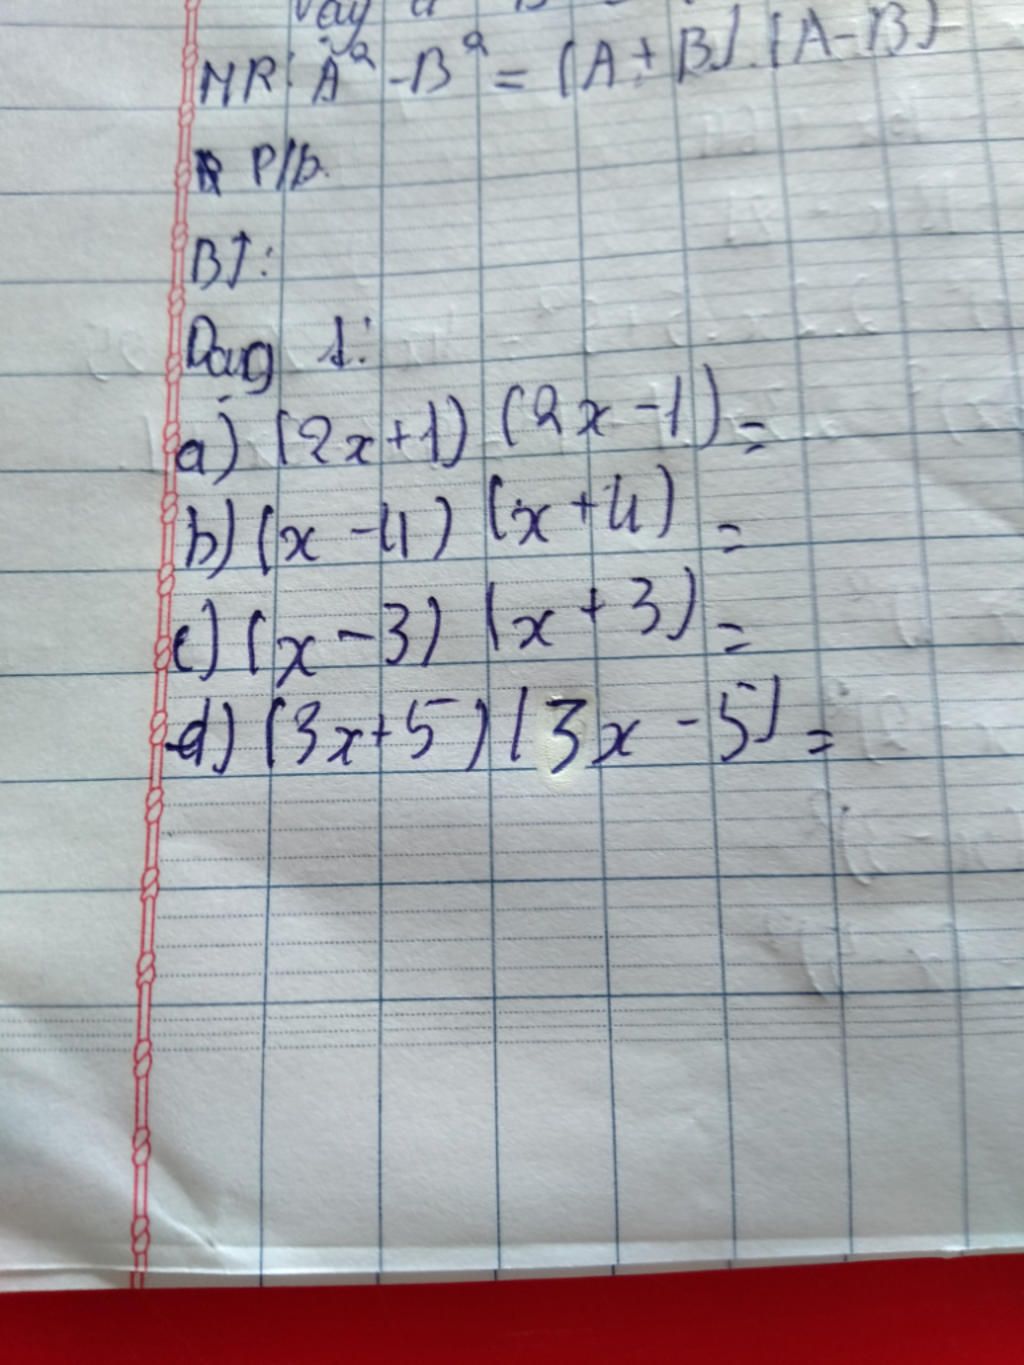 MR: A² - B² = (A + B).(A - B)
P/b
BT:
Dạng 1:
a) (2x+1) (2x-1) =
b) (x-4) (x+4) =
c) (x-3) (x+3) =
d) (3x+5) (3x-5) =